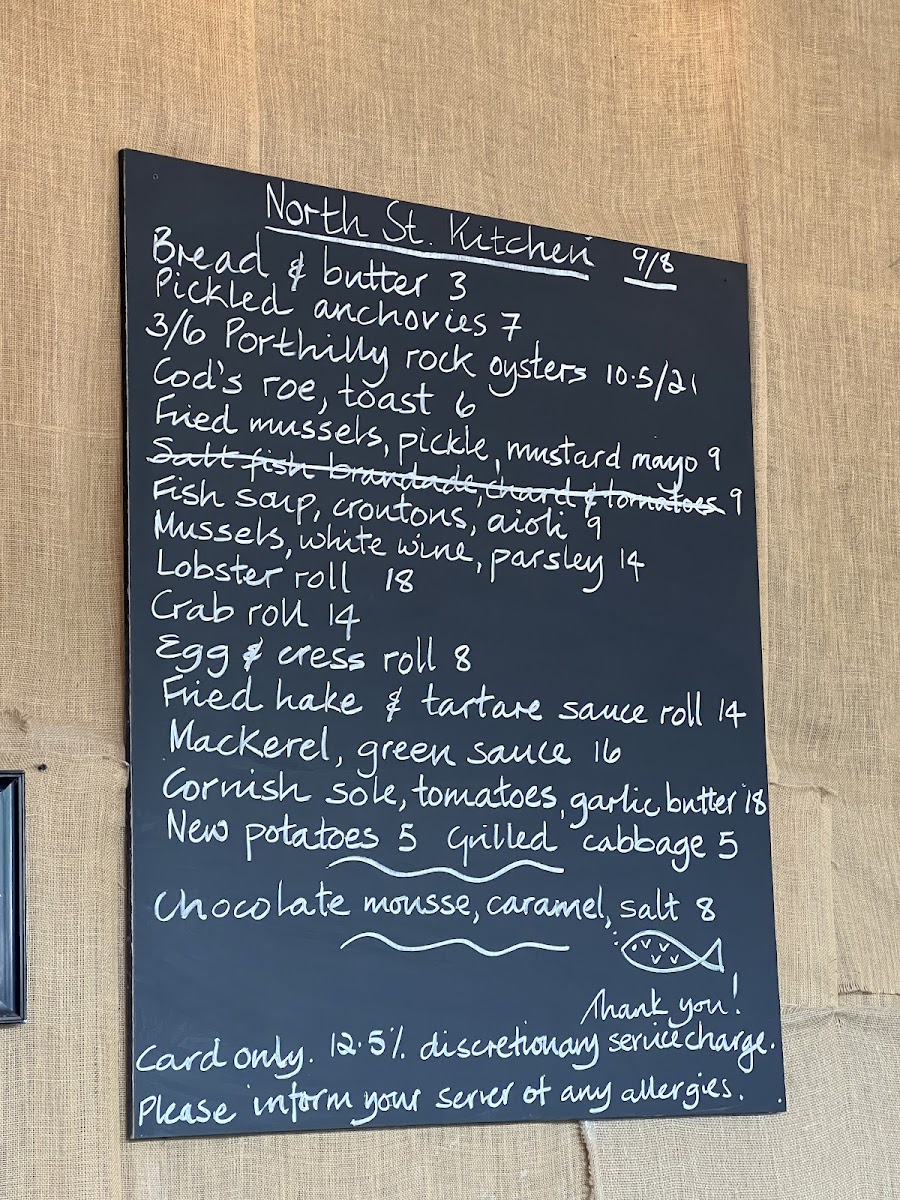 North St. Kitchen 9/8
Bread & butter 3
Pickled anchovies 7
3/6 Porthilly rock oysters 10.5/21
Cod's roe, toast 6
Fried mussels, pickle, mustard mayo 9
Salt fish brandade, chard & tomatoes 9
Fish soup, croutons, aioli 9
Mussels, white wine, parsley 14
Lobster roll 18
Crab roll 14
Egg & cress roll 8
Fried hake & tartare sauce roll 14
Mackerel, green sauce 16
Cornish sole, tomatoes, garlic butter 18
New potatoes 5 Grilled cabbage 5
Chocolate mousse, caramel, salt 8
Thank you!
Card only. 12.5% discretionary service charge.
Please inform your server of any allergies.